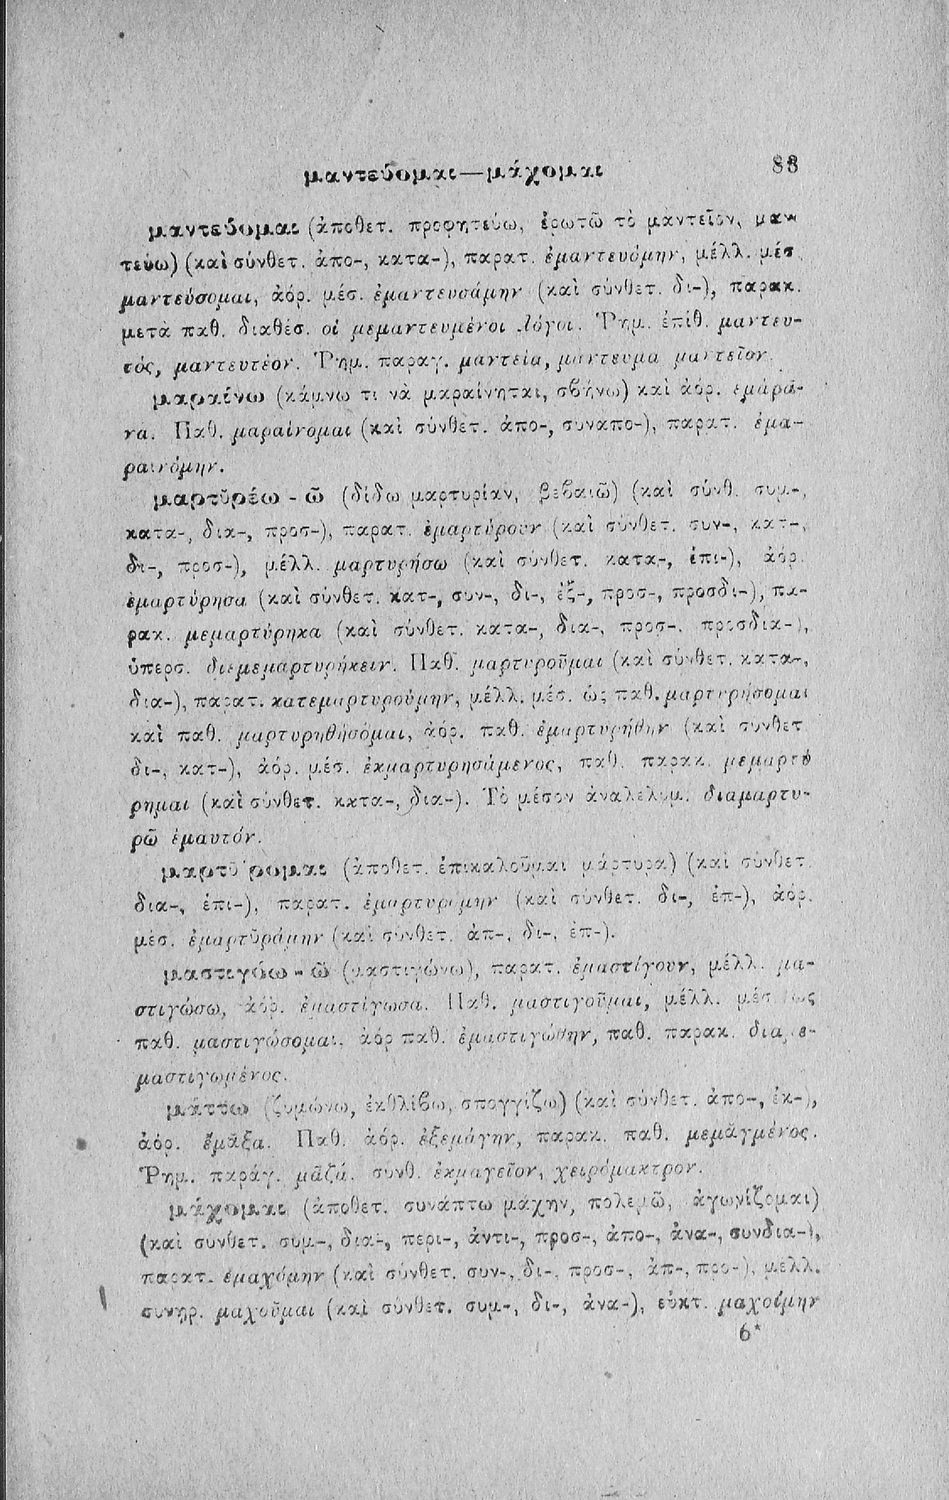 μαντεύομαι—μάχομαι 83
μαντεύομαι (ἀποθετ. προφητεύω, ἐρωτῶ τὸ μαντεῖον, μαν-
τεύω) (καὶ σύνθετ. ἀπο-, κατα-), παρατ. ἐμαντευόμην, μέλλ. μέσ.
μαντεύσομαι, ἀόρ. μέσ. ἐμαντευσάμην (καὶ σύνθετ. δι-), παρακ.
μετὰ παθ. διαθέσ. οἱ μεμαντευμένοι λόγοι. Ῥημ. ἐπίθ. μαντευ-
τός, μαντευτέον. Ῥημ. παραγ. μαντεία, μάντευμα μαντεῖον.
μαραίνω (κάμνω τι νὰ μαραίνηται, σβήνω) καὶ ἀόρ. ἐμάρα-
να. Παθ. μαραίνομαι (καὶ σύνθετ. ἀπο-, συναπο-), παρατ. ἐμα-
ραινόμην.
μαρτῠρέω - ῶ (δίδω μαρτυρίαν, βεβαιῶ) (καὶ σύνθ. συμ-,
κατα-, δια-, προσ-), παρατ. ἐμαρτύρουν (καὶ σύνθετ. συν-, κατ-,
δι-, προσ-), μέλλ. μαρτυρήσω (καὶ σύνθετ. κατα-, ἐπι-), ἀόρ.
ἐμαρτύρησα (καὶ σύνθετ. κατ-, συν-, δι-, ἐξ-, προσ-, προσδι-), πα-
ρακ. μεμαρτύρηκα (καὶ σύνθετ. κατα-, δια-, προσ-, προσδια-),
ὑπερσ. διεμεμαρτυρήκειν. Παθ. μαρτυροῦμαι (καὶ σύνθετ. κατα-,
δια-), παρατ. κατεμαρτυρούμην, μέλλ. μέσ. ὡς παθ. μαρτυρήσομαι
καὶ παθ. μαρτυρηθήσομαι, ἀόρ. παθ. ἐμαρτυρήθην (καὶ σύνθετ.
δι-, κατ-), ἀόρ. μέσ. ἐκμαρτυρησάμενος, παθ. παρακ. μεμαρτύ
ρημαι (καὶ σύνθετ. κατα-, δια-). Τὸ μέσον ἀναλελυμ. διαμαρτυ-
ρῶ ἐμαυτόν.
μαρτῡ́ρομαι (ἀποθετ. ἐπικαλοῦμαι μάρτυρα) (καὶ σύνθετ.
δια-, ἐπι-), παρατ. ἐμαρτυρόμην (καὶ σύνθετ. δι-, ἐπ-), ἀόρ.
μέσ. ἐμαρτῡράμην (καὶ σύνθετ. ἀπ-, δι-, ἐπ-).
μαστιγόω - ῶ (μαστιγώνω), παρατ. ἐμαστίγουν, μέλλ. μα-
στιγώσω, ἀόρ. ἐμαστίγωσα. Παθ. μαστιγοῦμαι, μέλλ. μέσ. ὡς
παθ. μαστιγώσομαι, ἀόρ παθ. ἐμαστιγώθην, παθ. παρακ. διαμε-
μαστιγωμένος.
μάττω (ζυμώνω, ἐκθλίβω, σπογγίζω) (καὶ σύνθετ. ἀπο-, ἐκ-),
ἀόρ. ἔμᾰξα. Παθ. ἀόρ. ἐξεμάγην, παρακ. παθ. μεμᾰγμένος.
Ῥημ. παράγ. μᾶζά. συνθ. ἐκμαγεῖον, χειρόμακτρον.
μάχομαι (ἀποθετ. συνάπτω μάχην, πολεμῶ, ἀγωνίζομαι)
(καὶ σύνθετ. συμ-, δια-, περι-, ἀντι-, προσ-, ἀπο-, ἀνα-, συνδια-),
παρατ. ἐμαχόμην (καὶ σύνθετ. συν-, δι-, προσ-, ἀπ-, προ-), μέλλ.
συνηρ. μαχοῦμαι (καὶ σύνθετ. συμ-, δι-, ἀνα-), εὐκτ. μαχοίμην
6*